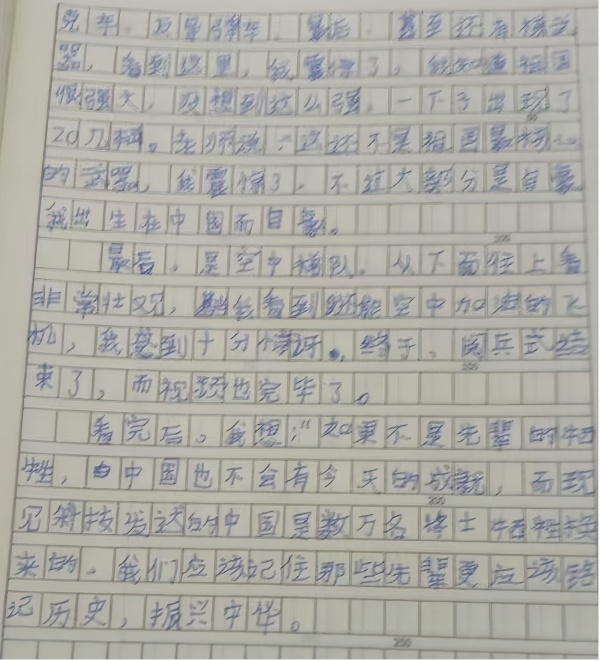 看到这里，我震惊了，我知道祖国
很强大，没想到这么强，一下子出现了
20几种。 这还不是祖国最
的武器，我震惊了，不过大部分是自豪
我出生在中国而自豪。
最后，是空中梯队。从下面往上看
非常壮观，当我看到 空中加油的飞
机，我感到十分惊讶。终于，阅兵式结
束了，而视频也完毕了。
看完后，我想：“如果不是先辈的牺
牲，中国也不会有今天的成就，而现
见科技发达的中国是数万名将士牺牲换
来的。我们应该记住那些先辈更应该铭
记历史，振兴中华。
200
200
200
200